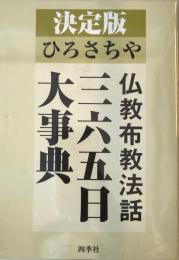 決定版
ひろさちや
仏教布教法話
三六五日
大事典
四季社